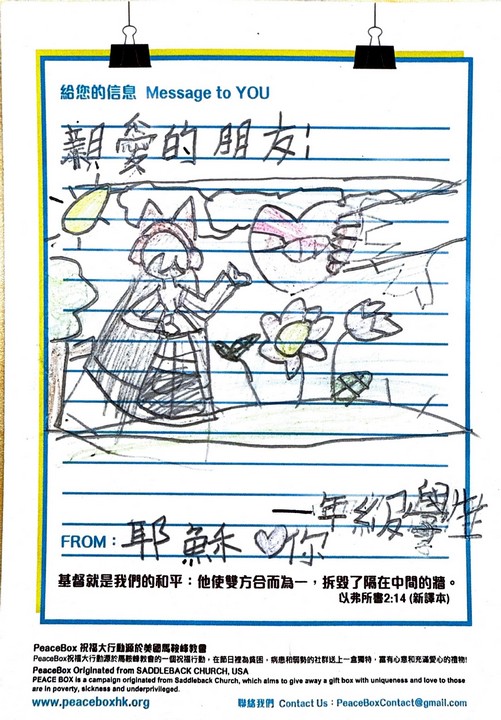 給您的信息 Message to YOU
親愛的朋友:
一年級學生
FROM：耶穌♡你
基督就是我們的和平：他使雙方合而為一，拆毀了隔在中間的牆。
以弗所書2:14 (新譯本)
PeaceBox 祝福大行動源於美國馬鞍峰教會
PeaceBox祝福大行動源於馬鞍峰教會的一個祝福行動，在節日裡為貧困，病患和弱勢的社群送上一盒獨特，富有心意和充滿愛心的禮物!
PeaceBox Originated from SADDLEBACK CHURCH, USA
PEACE BOX is a campaign originated from Saddleback Church, which aims to give away a gift box with uniqueness and love to those
are in poverty, sickness and underprivileged.
www.peaceboxhk.org 聯絡我們 Contact Us : PeaceBoxContact@gmail.com